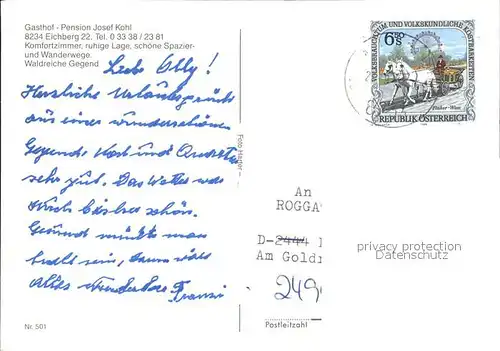 Gasthof - Pension Josef Kohl
8234 Eichberg 22, Tel. 0 33 38 / 23 81
Komfortzimmer, ruhige Lage, schöne Spazier-
und Wanderwege.
Waldreiche Gegend
Liebe Olly!
Herzliche Urlaubsgrüße
aus einer wunderschönen
Gegend. Kost und Quartier
sehr gut. Das Wetter war
auch bisher schön.
Gesund müßte man
halt sein, dann wäre
alles wunderbar Franzi
Nr. 501
Foto Hager –
VOLKSBRAUCHTUM UND VOLKSKUNDLICHE KOSTBARKEITEN
6.50 S
Fiaker - Wien
REPUBLIK ÖSTERREICH
An
ROGGA
D-2444
Am Gold
249
Postleitzahl
privacy protection
Datenschutz